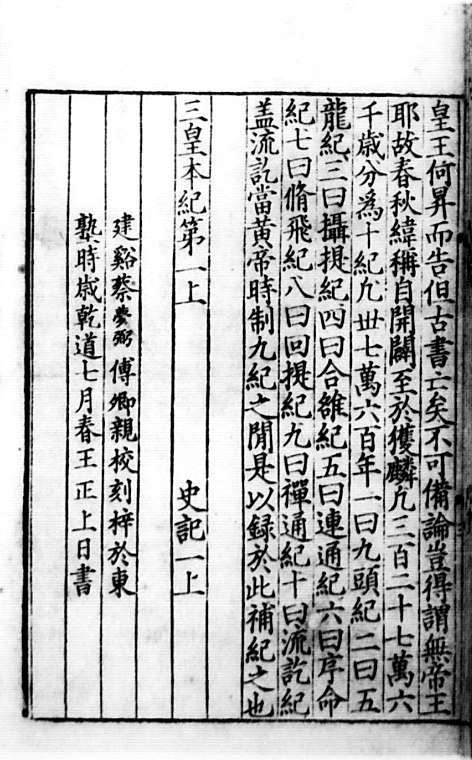 皇王何昇而告但古書亡矣不可備論豈得謂無帝王
耶故春秋緯稱自開闢至於獲麟凢三百二十七萬六
千歲分爲十紀凢丗七萬六百年一曰九頭紀二曰五
龍紀三曰攝提紀四曰合雒紀五曰連通紀六曰序命
紀七曰脩飛紀八曰回提紀九曰禪通紀十曰流訖紀
盖流訖當黄帝時制九紀之閒是以録於此補紀之也
三皇本紀第一上 史記一上
建谿蔡夢弼傅卿親校刻梓於東
塾時歲乾道七月春王正上日書